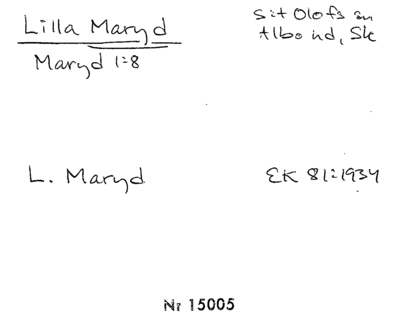 Lilla Maryd
S:t Olofs sn
Albo hd, Sk
Maryd 1:8
L. Maryd
EK 81:1934
Nr 15005